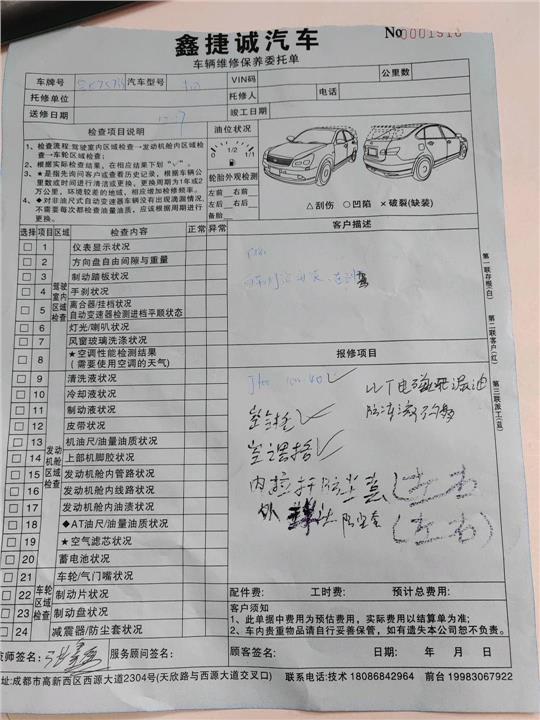 鑫捷诚汽车
No 0001910
车辆维修保养委托单
公里数
车牌号
汽车型号
VIN码
托修单位
托修人
电话
送修日期
竣工日期
检查项目说明
油位状况
1、检查流程:驾驶室内区域检查→发动机舱内区域检
查→车轮区域检查;
2、根据实际检查结果,在相应结果下划“√”。
3、★是指先询问客户或查看历史记录,根据车辆公
里数或时间进行清洁或更换。更换周期为1年或2
万公里,环境较差的地域,相应增加检修频率。
4、◆对非油尺式自动变速器车辆没有出现滴漏情况,
不需要每次都检查油量油质,应该根据周期进行
更换。
0 1/2 1/1
轮胎外观检测
左前 右前
左后 右后
备胎
△刮伤 ○凹陷 ×破裂(缺装)
选择 项目 区域 检查内容 正常 异常
客户描述
驾驶室内区域检查
1 仪表显示状况
2 方向盘自由间隙与重量
3 制动踏板状况
4 手刹状况
5 离合器/挂档状况
自动变速器检测进档平顺状态
6 灯光/喇叭状况
7 风窗玻璃洗涤状况
8 ★空调性能检测结果
(需要使用空调的天气)
报修项目
发动机舱区域检查
9 清洗液状况
10 冷却液状况
11 制动液状况
12 皮带状况
13 机油尺/油量油质状况
14 上部机脚胶状况
15 发动机舱内管路状况
16 发动机舱内线路状况
17 发动机舱内油渍状况
18 ◆AT油尺/油量油质状况
19 ★空气滤芯状况
20 蓄电池状况
车轮区域检查
21 车轮/气门嘴状况
22 制动片状况
23 制动盘状况
24 减震器/防尘套状况
内拉杆防尘套(左右)
外 防尘套(左右)
第一联存根(白) 第二联客户(红) 第三联派工(蓝)
配件费: 工时费: 预计总费用:
客户须知
1、此单据中费用为预估费用,实际费用以结算单为准;
2、车内贵重物品请自行妥善保管,如有遗失本公司恕不负责。
技师签名: 服务顾问签名: 顾客签名: 日期: 年 月 日
址:成都市高新西区西源大道2304号(天欣路与西源大道交叉口) 联系电话:技术 18086842964 前台 19983067922